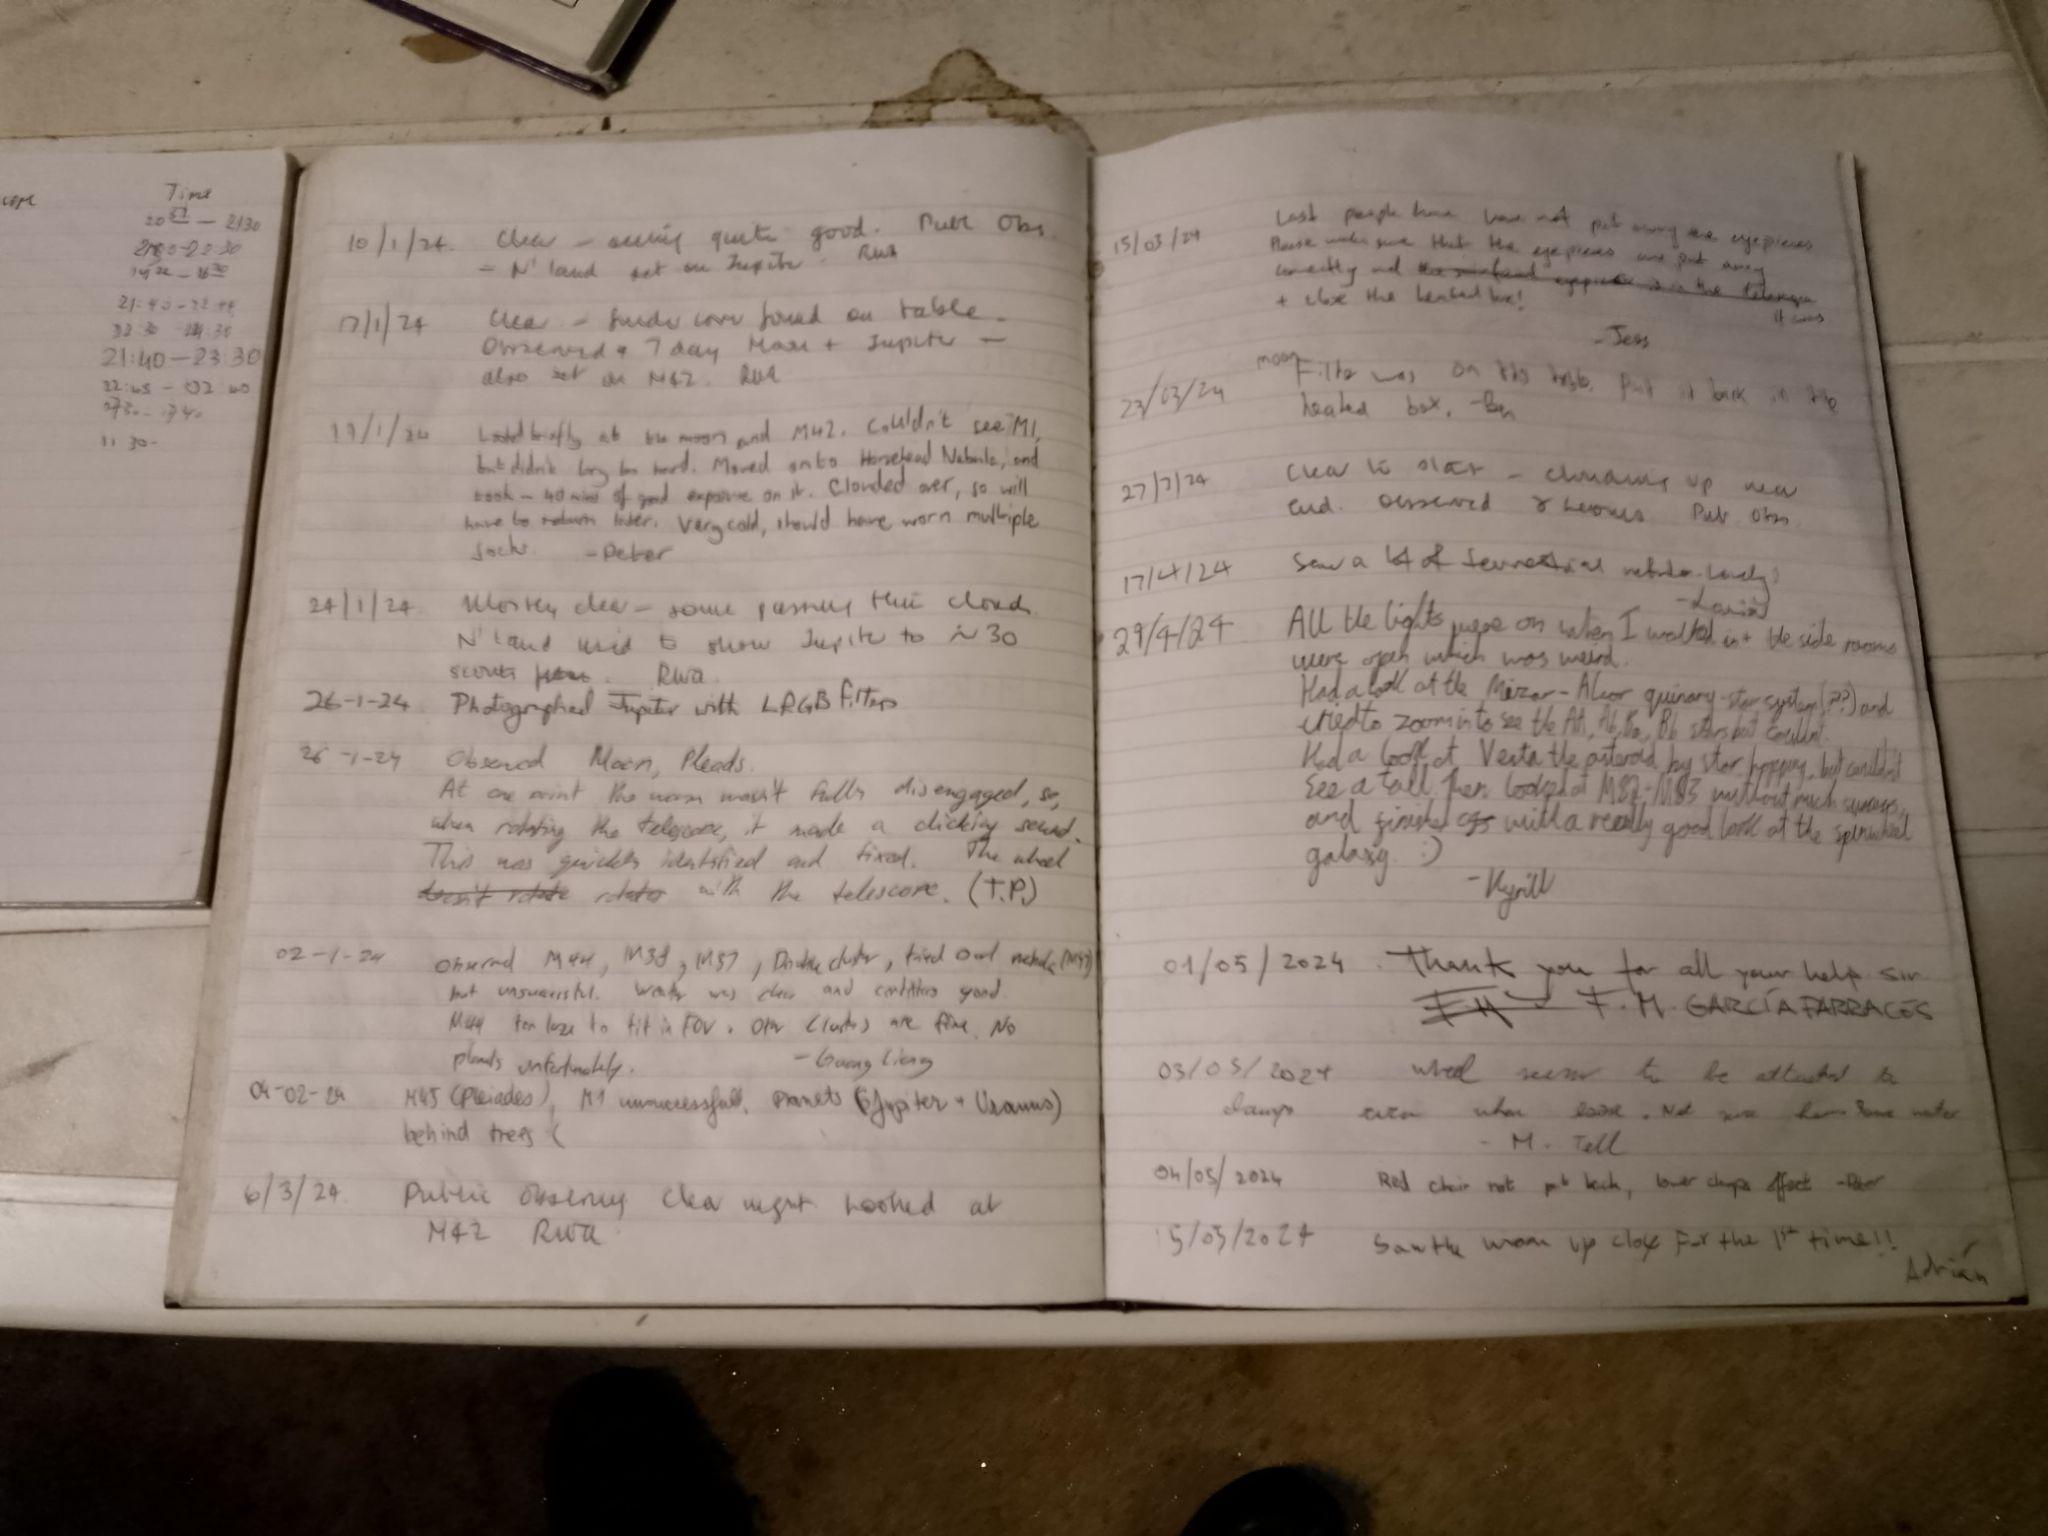 Time
20 51 — 2130
21:40 - 22:44
21:40 — 23:30
11 30-
10/1/24. Clear — seeing quite good. Publ Obs.
— N'land set on Jupiter. RWA
17/1/24 Clear — finder cover found on table —
Observed a 7 day Moon + Jupiter —
also set on M42. RWA
19/1/24 Looked briefly at the moon and M42. Couldn't see M1,
but didn't try too hard. Moved onto Horsehead Nebula, and
took ~ 40 mins of good exposure on it. Clouded over, so will
have to return later. Very cold, should have worn multiple
socks. -Peter
24/1/24. Mostly clear — some passing thin cloud.
N'land used to show Jupiter to ~ 30
scouts. RWA.
26-1-24 Photographed Jupiter with LRGB filters
26-1-24 Observed Moon, Pleads.
At one point the worm wasn't fully disengaged, so,
when rotating the telescope, it made a clicking sound.
This was quickly identified and fixed. The wheel
doesn't rotate rotates with the telescope. (T.P.)
02-1-24 Observed M44, M38, M37, Double cluster, tried Owl nebula (M97)
but unsuccessful. Weather was clear and conditions good.
M44 too large to fit in FOV. Other clusters are fine. No
planets unfortunately. -Guang Liang
04-02-24 M45 (Pleiades), M1 unsuccessful, planets (Jupiter + Uranus)
behind trees (
6/3/24. Public observing clear night. Looked at
M42 RWA.
15/03/24 Last people have not put away the eyepieces
Please make sure that the eyepieces are put away
correctly and eyepiece is in the telescope
+ close the heated box! it was
-Jess
23/03/24 moon Filter was on the table, put it back in the
heated box. -Ben
27/3/24 Clear to start — clouding up near
end. Observed γ Leonis Publ Obs.
17/4/24 Saw a lot of terrestrial nebula. Lovely!
29/4/24 All the lights were on when I walked in + the side rooms
were open which was weird.
Had a look at the Mizar-Alcor quinary-star system (??) and
tried to zoom in to see the Aa, Ab, Ba, Bb stars but couldn't.
Had a look at Vesta the asteroid by star hopping, but couldn't
see a tail. Then looked at M82-M83 without much success,
and finished off with a really good look at the spinwheel
galaxy. :)
-Kyrill
01/05/2024. Thank you for all your help sir
F. M. GARCÍA PARRACES
03/05/2024 wheel seems to be attached to
clamps even when loose. Not sure
- M. Tell
04/05/2024 Red chair not put back, lower dome effect -Peter
15/05/2024 Saw the moon up close for the 1st time!!
Adrián